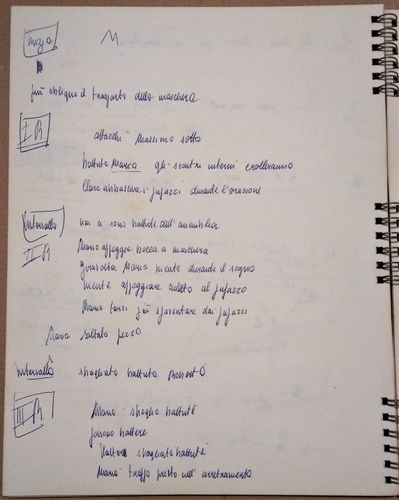 Inizio
più obliquo il trasporto della maschera
I R.
attacchi Massimo sotto
battuta Mario gli scontri interni crolleranno
Clara abbassare i pupazzi durante l'orazione
Intervallo
non ci sono battute dell'assemblea
II R
Mario appoggia bocca a maschera
Mario niente durante il sogno
niente appoggiare culetto al pupazzo
Mario farsi più spaventare dai pupazzi
Mario saltato pezzo
Intervallo
sbagliato battuta
III R.
Mario: sbaglia battute
possono battere
sbagliato battute
Mario troppo presto nell'arretramento